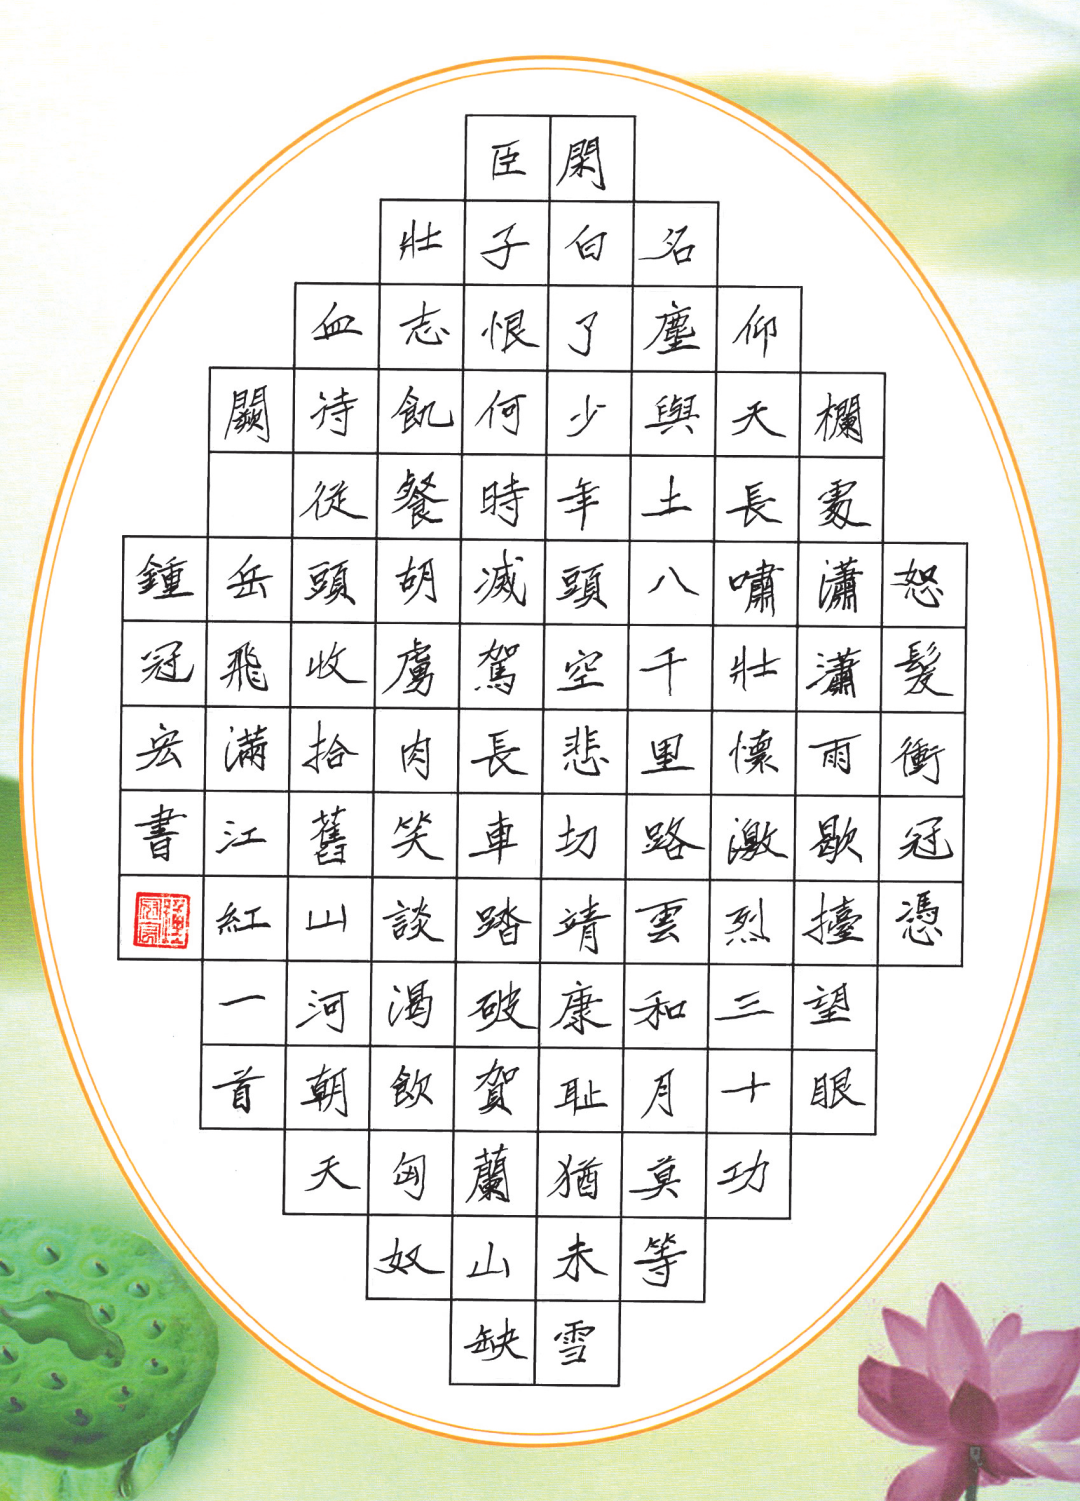 怒髮衝冠憑
欄處瀟瀟雨歇擡望眼
仰天長嘯壯懷激烈三十功
名塵與土八千里路雲和月莫等
閑白了少年頭空悲切靖康耻猶未雪
臣子恨何時滅駕長車踏破賀蘭山缺
壯志飢餐胡虜肉笑談渴飲匈奴
血待從頭收拾舊山河朝天
闕 岳飛滿江紅一首
鍾冠宏書